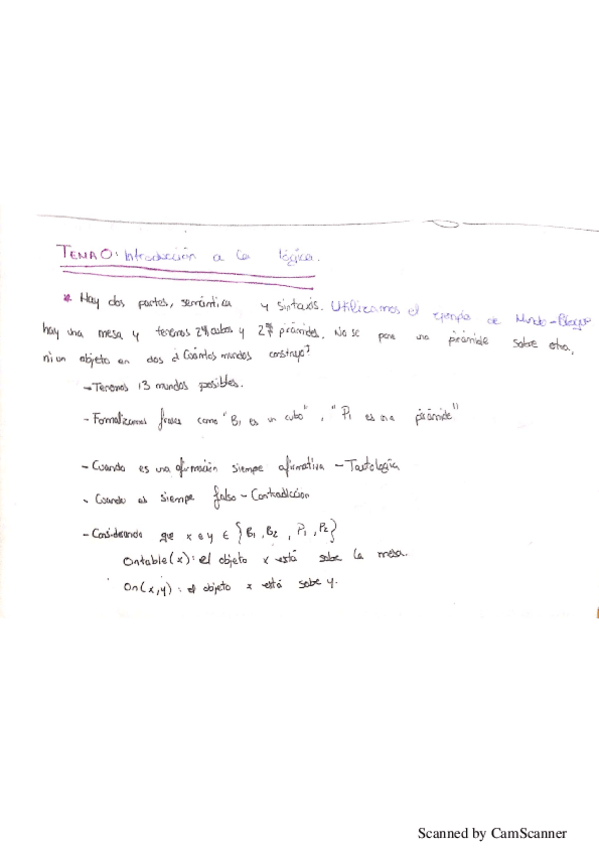 TEMA 0: Introducción a la lógica.
* Hay dos partes, semántica y sintaxis. Utilizamos el ejemplo de Mundo-Bloque
hay una mesa y tenemos 2 cubos y 2 pirámides. No se pone una pirámide sobre otra,
ni un objeto en dos ¿Cuántos mundos construyo?
- Tenemos 13 mundos posibles.
- Formalizamos frases como "B1 es un cubo", "P1 es una pirámide"
- Cuando es una afirmación siempre afirmativa - Tautología
- Cuando es siempre falso - Contradicción
- Considerando que x e y ∈ {B1, B2, P1, P2}
Ontable(x): el objeto x está sobre la mesa.
On(x,y): el objeto x está sobre y.
Scanned by CamScanner